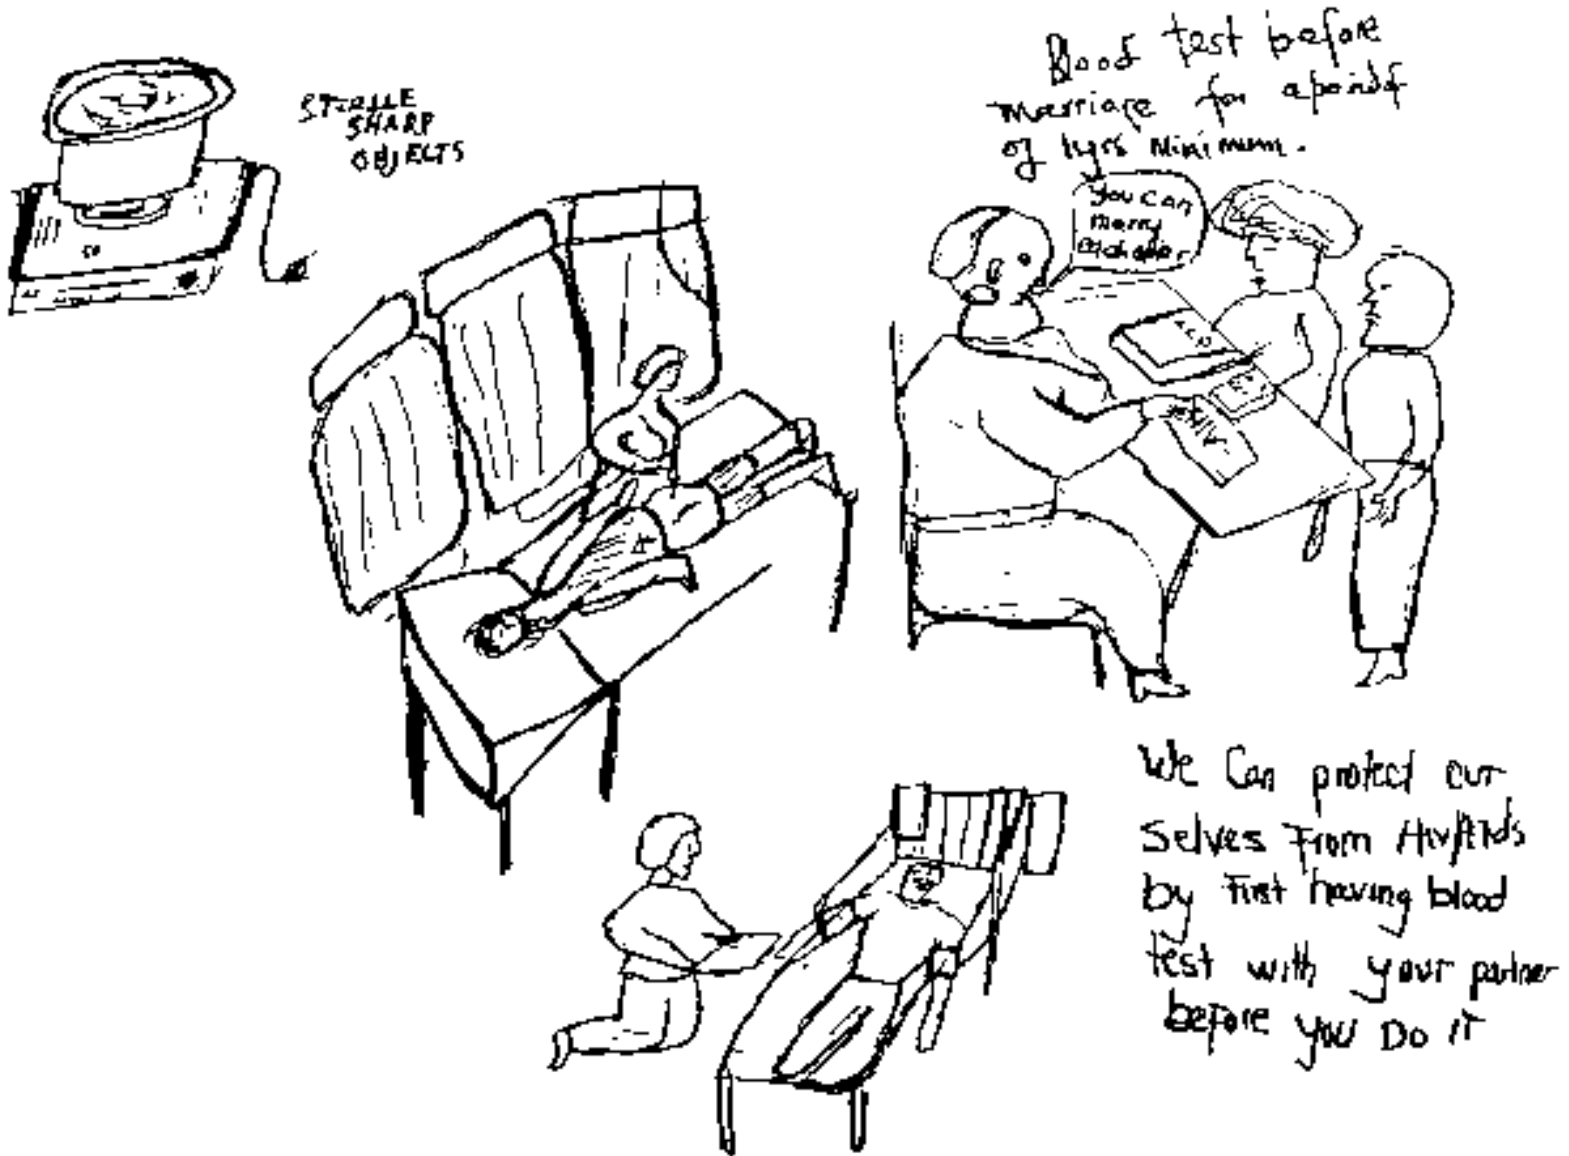 STERILE
SHARP
OBJECTS
Blood test before
marriage for a
of Minimum.
you can
marry
each other
HIV
We Can protect our
selves From HIV/AIDs
by First having blood
test with your partner
before you Do iT